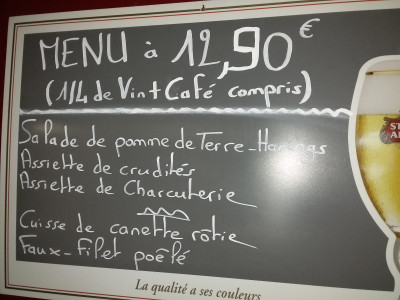 MENU à 12,90€
(1/4 de Vin + Café compris)
Salade de pomme de Terre - Harengs
Assiette de crudités
Assiette de Charcuterie
Cuisse de canette rôtie
Faux-Filet poêlé
La qualité a ses couleurs